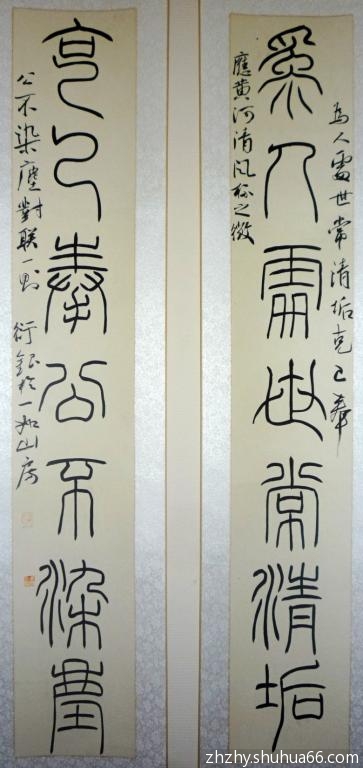 为人需世常清垢克己奉
為人需世常清垢
應黄河清风杯之徵
克己奉公不染塵
公不染塵對联一則 衍 於一如山房
zhzhy.shuhua66.com